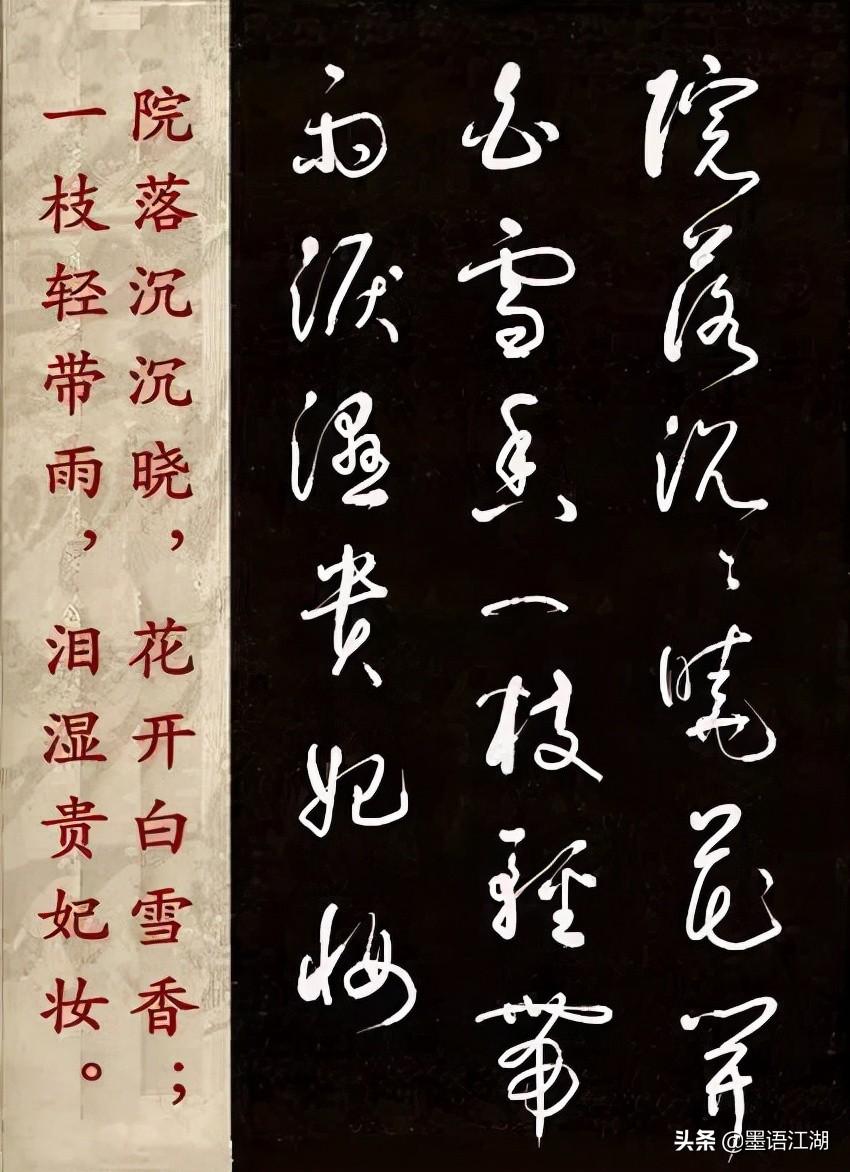 院落沉沉晓，花开白雪香；
一枝轻带雨，泪湿贵妃妆。
院落沉〻曉花開
白雪香一枝輕帶
雨淚濕貴妃妝
头条 @墨语江湖